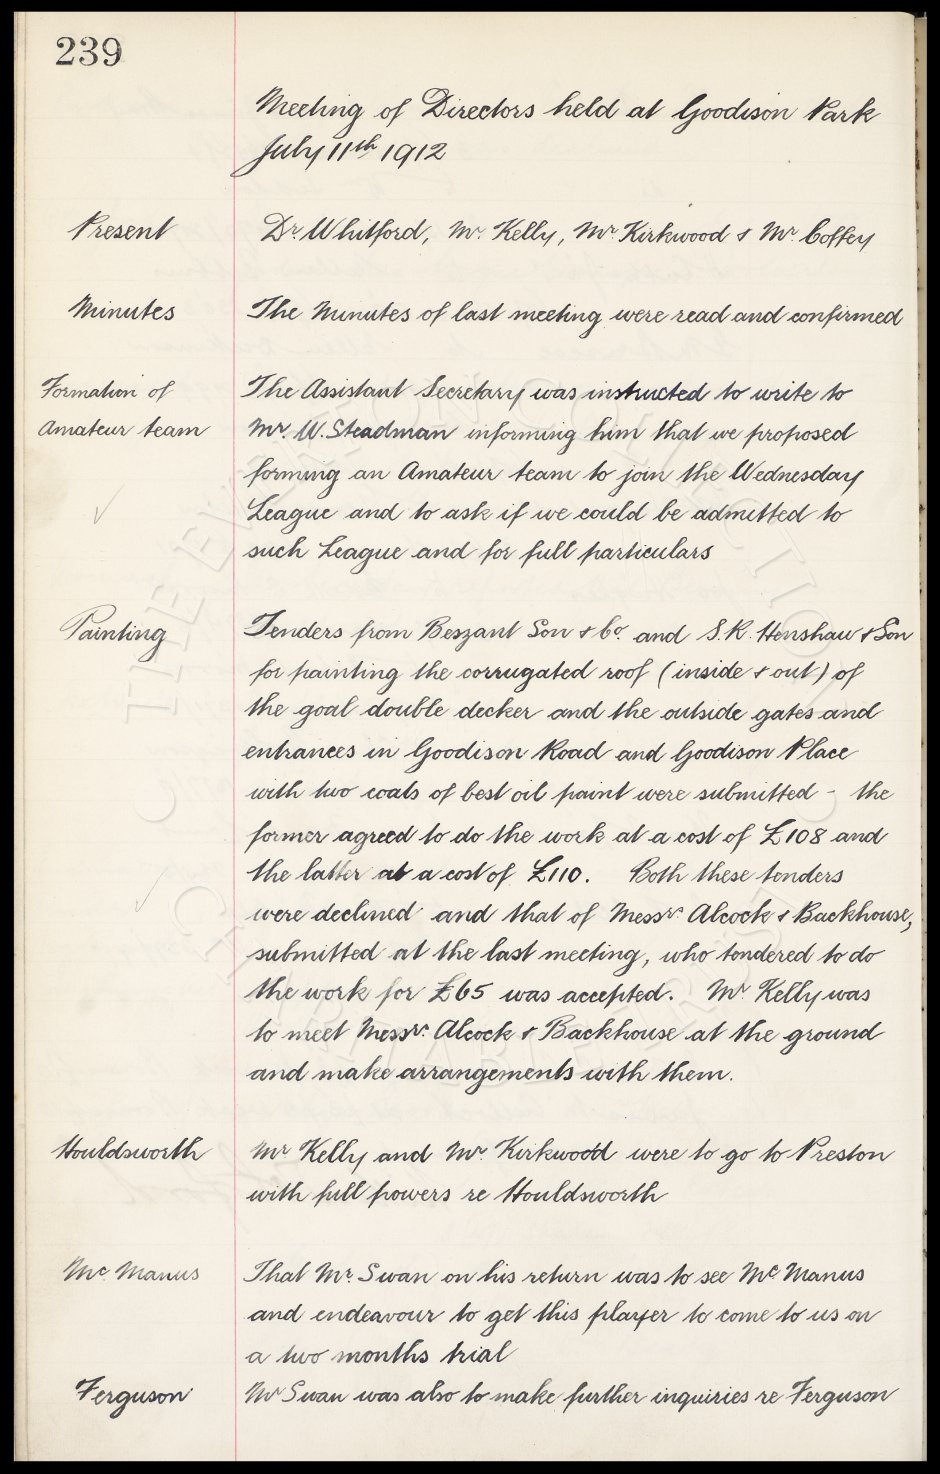 239
Meeting of Directors held at Goodison Park
July 11th 1912
Present Dr. Whitford, Mr. Kelly, Mr. Kirkwood & Mr. Coffey
Minutes The Minutes of last meeting were read and confirmed
Formation of The Assistant Secretary was instructed to write to
Amateur team Mr. W. Steadman informing him that we proposed
forming an Amateur team to join the Wednesday
League and to ask if we could be admitted to
such League and for full particulars
Painting Tenders from Beszant Son & Co. and S.R. Henshaw & Son
for painting the corrugated roof (inside & out) of
the goal double decker and the outside gates and
entrances in Goodison Road and Goodison Place
with two coats of best oil paint were submitted - the
former agreed to do the work at a cost of £108 and
the latter at a cost of £110. Both these tenders
were declined and that of Messrs Alcock & Backhouse,
submitted at the last meeting, who tendered to do
the work for £65 was accepted. Mr Kelly was
to meet Messrs. Alcock & Backhouse at the ground
and make arrangements with them.
Houldsworth Mr Kelly and Mr. Kirkwood were to go to Preston
with full powers re Houldsworth
Mc Manus That Mr. Swan on his return was to see Mc Manus
and endeavour to get this player to come to us on
a two months trial
Ferguson Mr Swan was also to make further inquiries re Ferguson